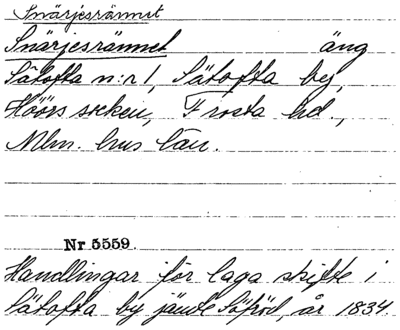 Snärjesrännet
Snärjesrännet äng
Sätofta n:r 1, Sätofta by,
Höörs socken, Frosta hd.,
Mlm. hus län.
Nr 5559.
Handlingar för laga skifte i
Sätofta by jämte Söfröd, år 1834.